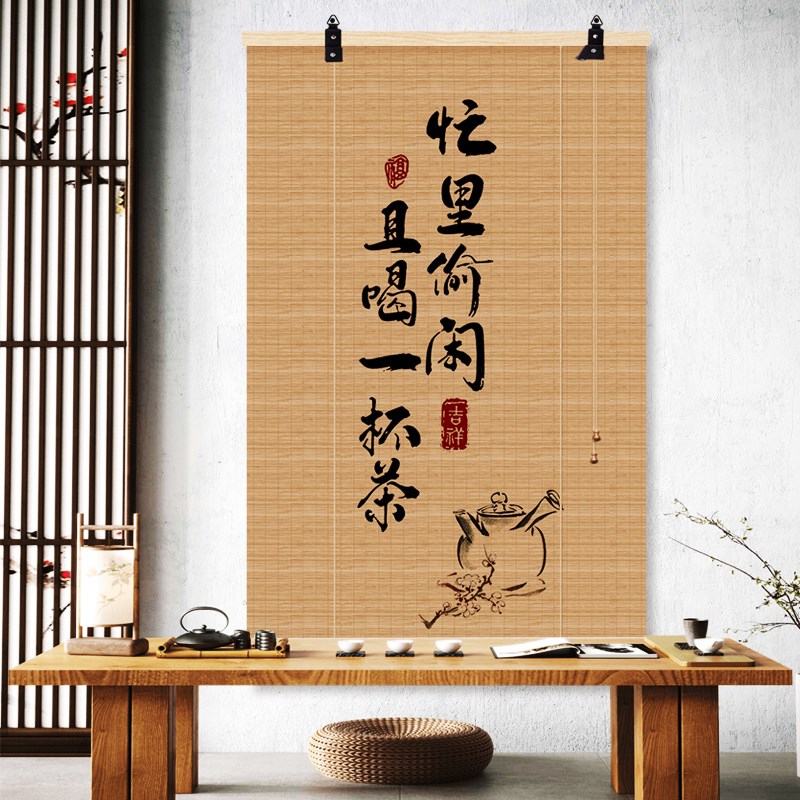 忙里偷闲
吉祥
且喝一杯茶